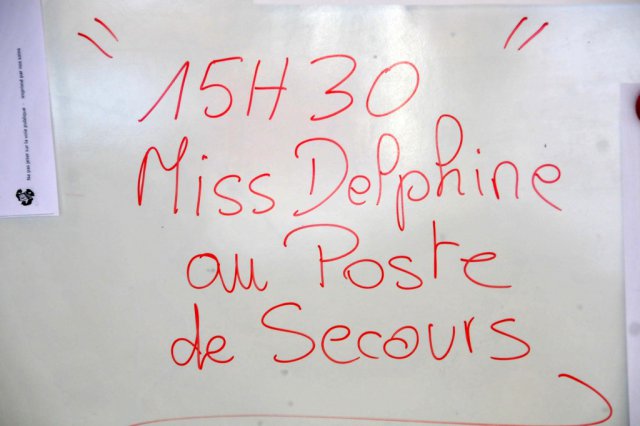 15H30
Miss Delphine
au Poste
de Secours
Ne pas jeter sur la voie publique - imprimé par nos soins